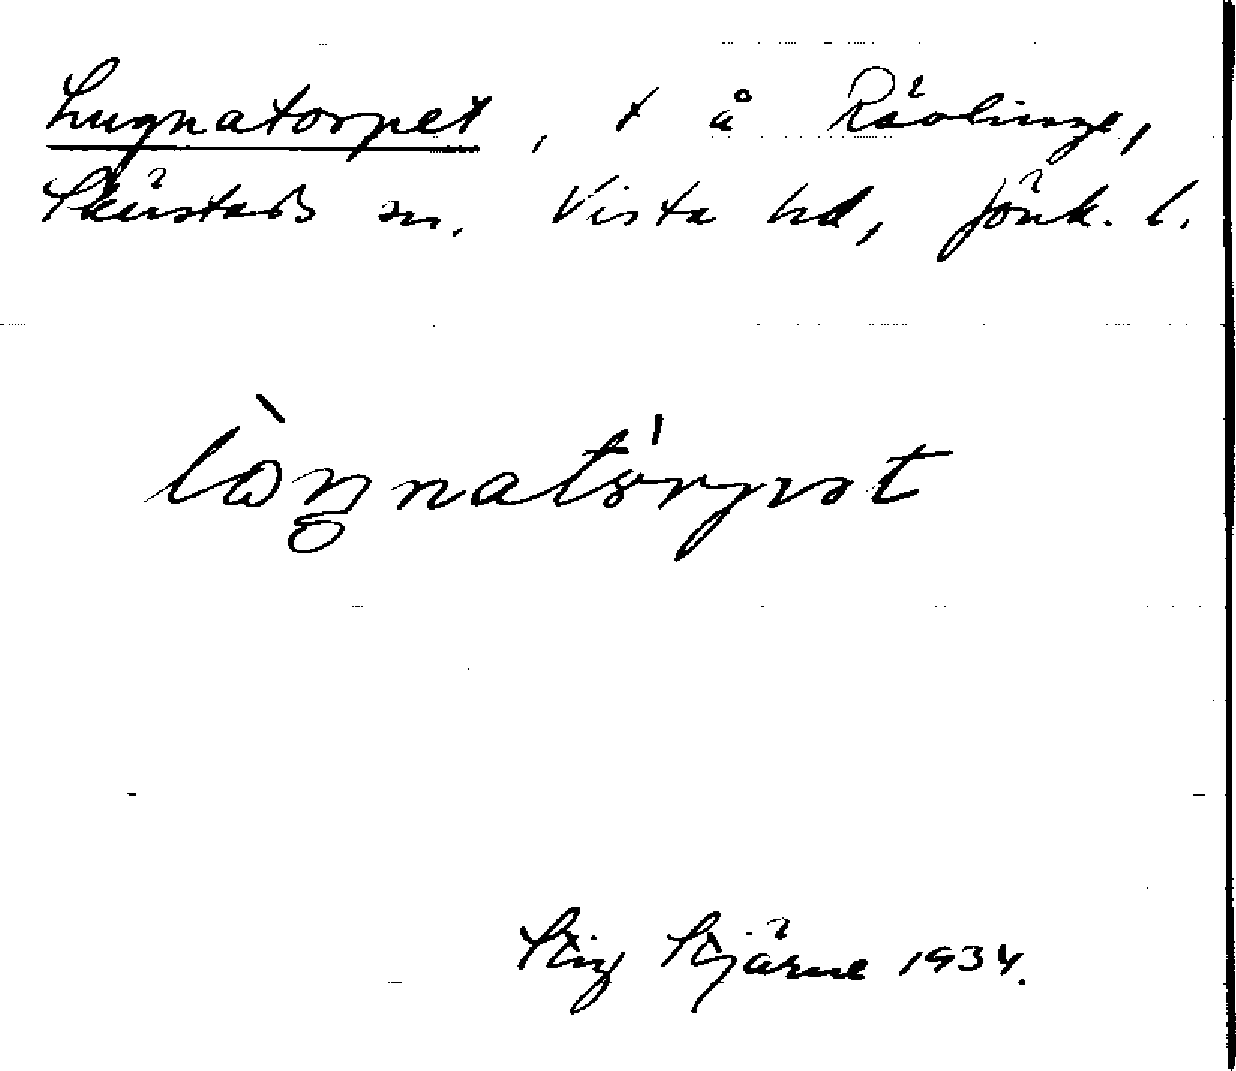 Lugnatorpet, t å Rävlinge,
Skärstads sn. Vista hd, Jönk. l.
lo̊ŋnatórpət
Stig Stjärne 1934.